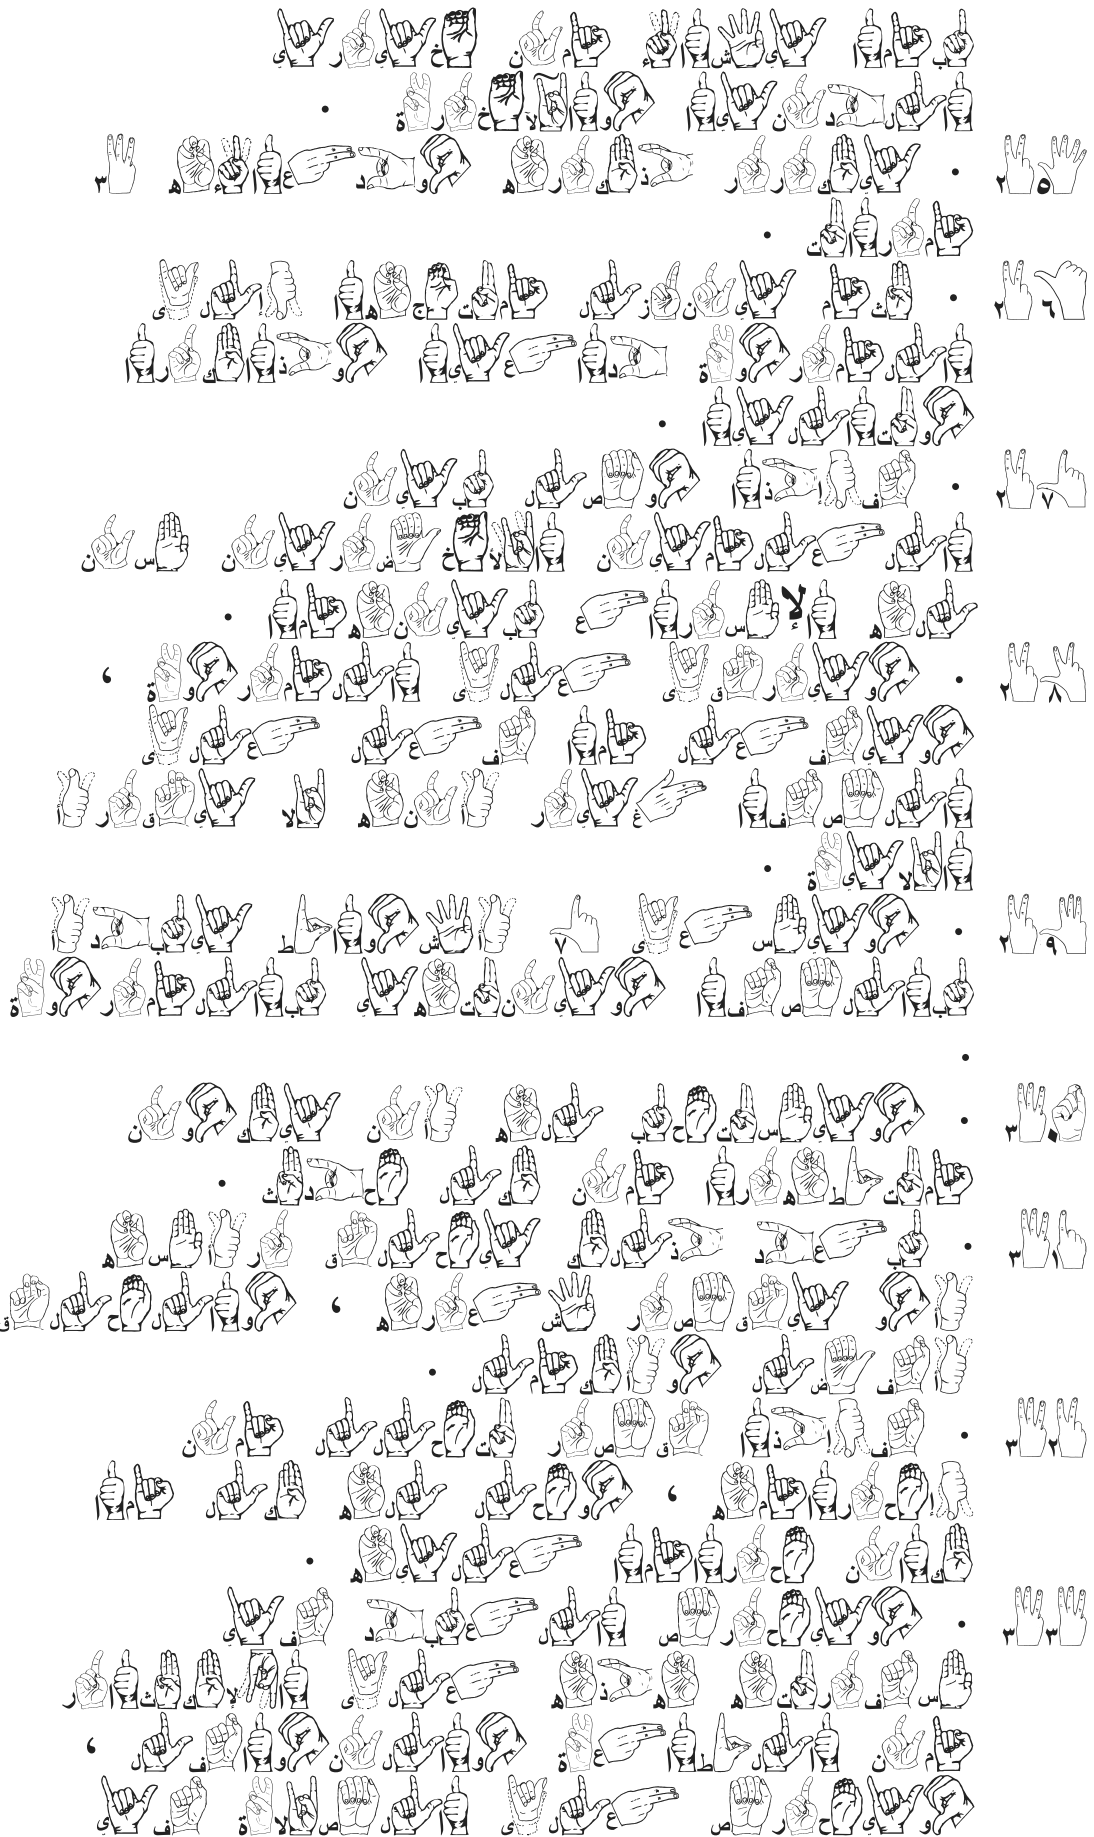 بما يشاء من خيري
الدنيا والآخرة .
٢٥ . يكرر ذكره ودعاءه ٣
مرات .
٢٦ . ثم ينزل متجها إلى
المروة داعيا وذاكرا
وتاليا .
٢٧ . فإذا وصل بين
العلمين الأخضرين سن
له الإسراع بينهما .
٢٨ . ويرقى على المروة ،
ويفعل ما فعل على
الصفا غير أنه لا يقرأ
الآية .
٢٩ . ويسعى ٧ أشواط يبدأ
بالصفا وينتهي بالمروة
.
٣٠ . ويستحب له أن يكون
متطهرا من كل حدث .
٣١ . بعد ذلك يحلق رأسه
أو يقصر شعره ، والحلق
أفضل وأكمل .
٣٢ . فإذا قصر تحلل من
إحرامه ، وحل له كل ما
كان حراما عليه .
٣٣ . ويحرص العبد في
سفرته هذه على الإكثار
من الطاعة والنوافل ،
ويحرص على الصلاة في